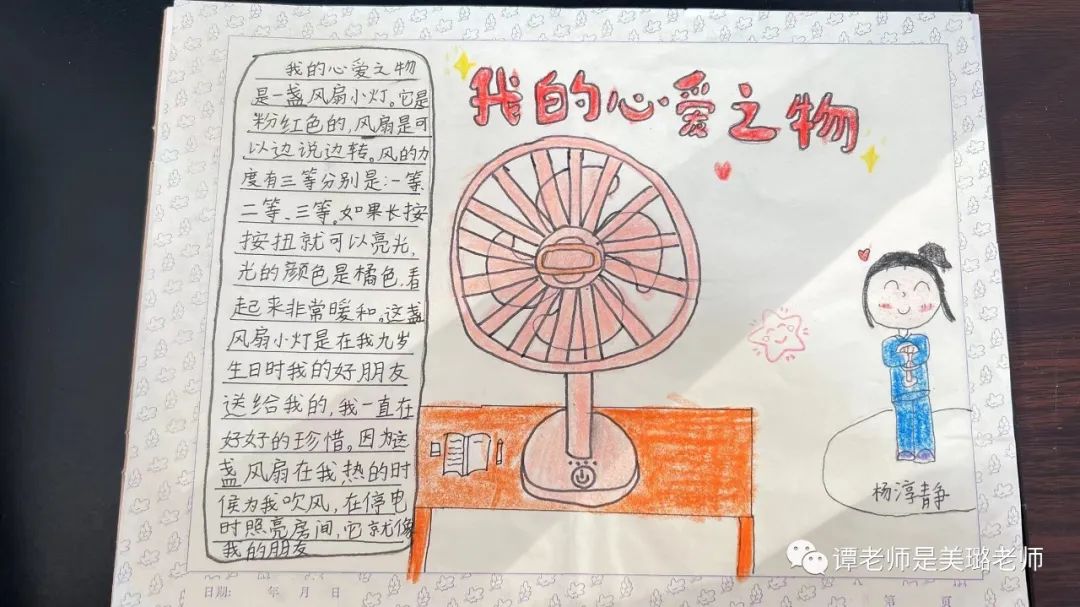 我的心爱之物
我的心爱之物
是一盏风扇小灯。它是
粉红色的,风扇是可
以边说边转。风的力
度有三等分别是:一等、
二等、三等。如果长按
按扭就可以亮光,
光的颜色是橘色,看
起来非常暖和。这盏
风扇小灯是在我九岁
生日时我的好朋友
送给我的,我一直在
好好的珍惜。因为这
盏风扇在我热的时
候为我吹风,在停电
时照亮房间,它就像
我的朋友
杨淳静
谭老师是美璐老师
日期: 年 月 日
第 页